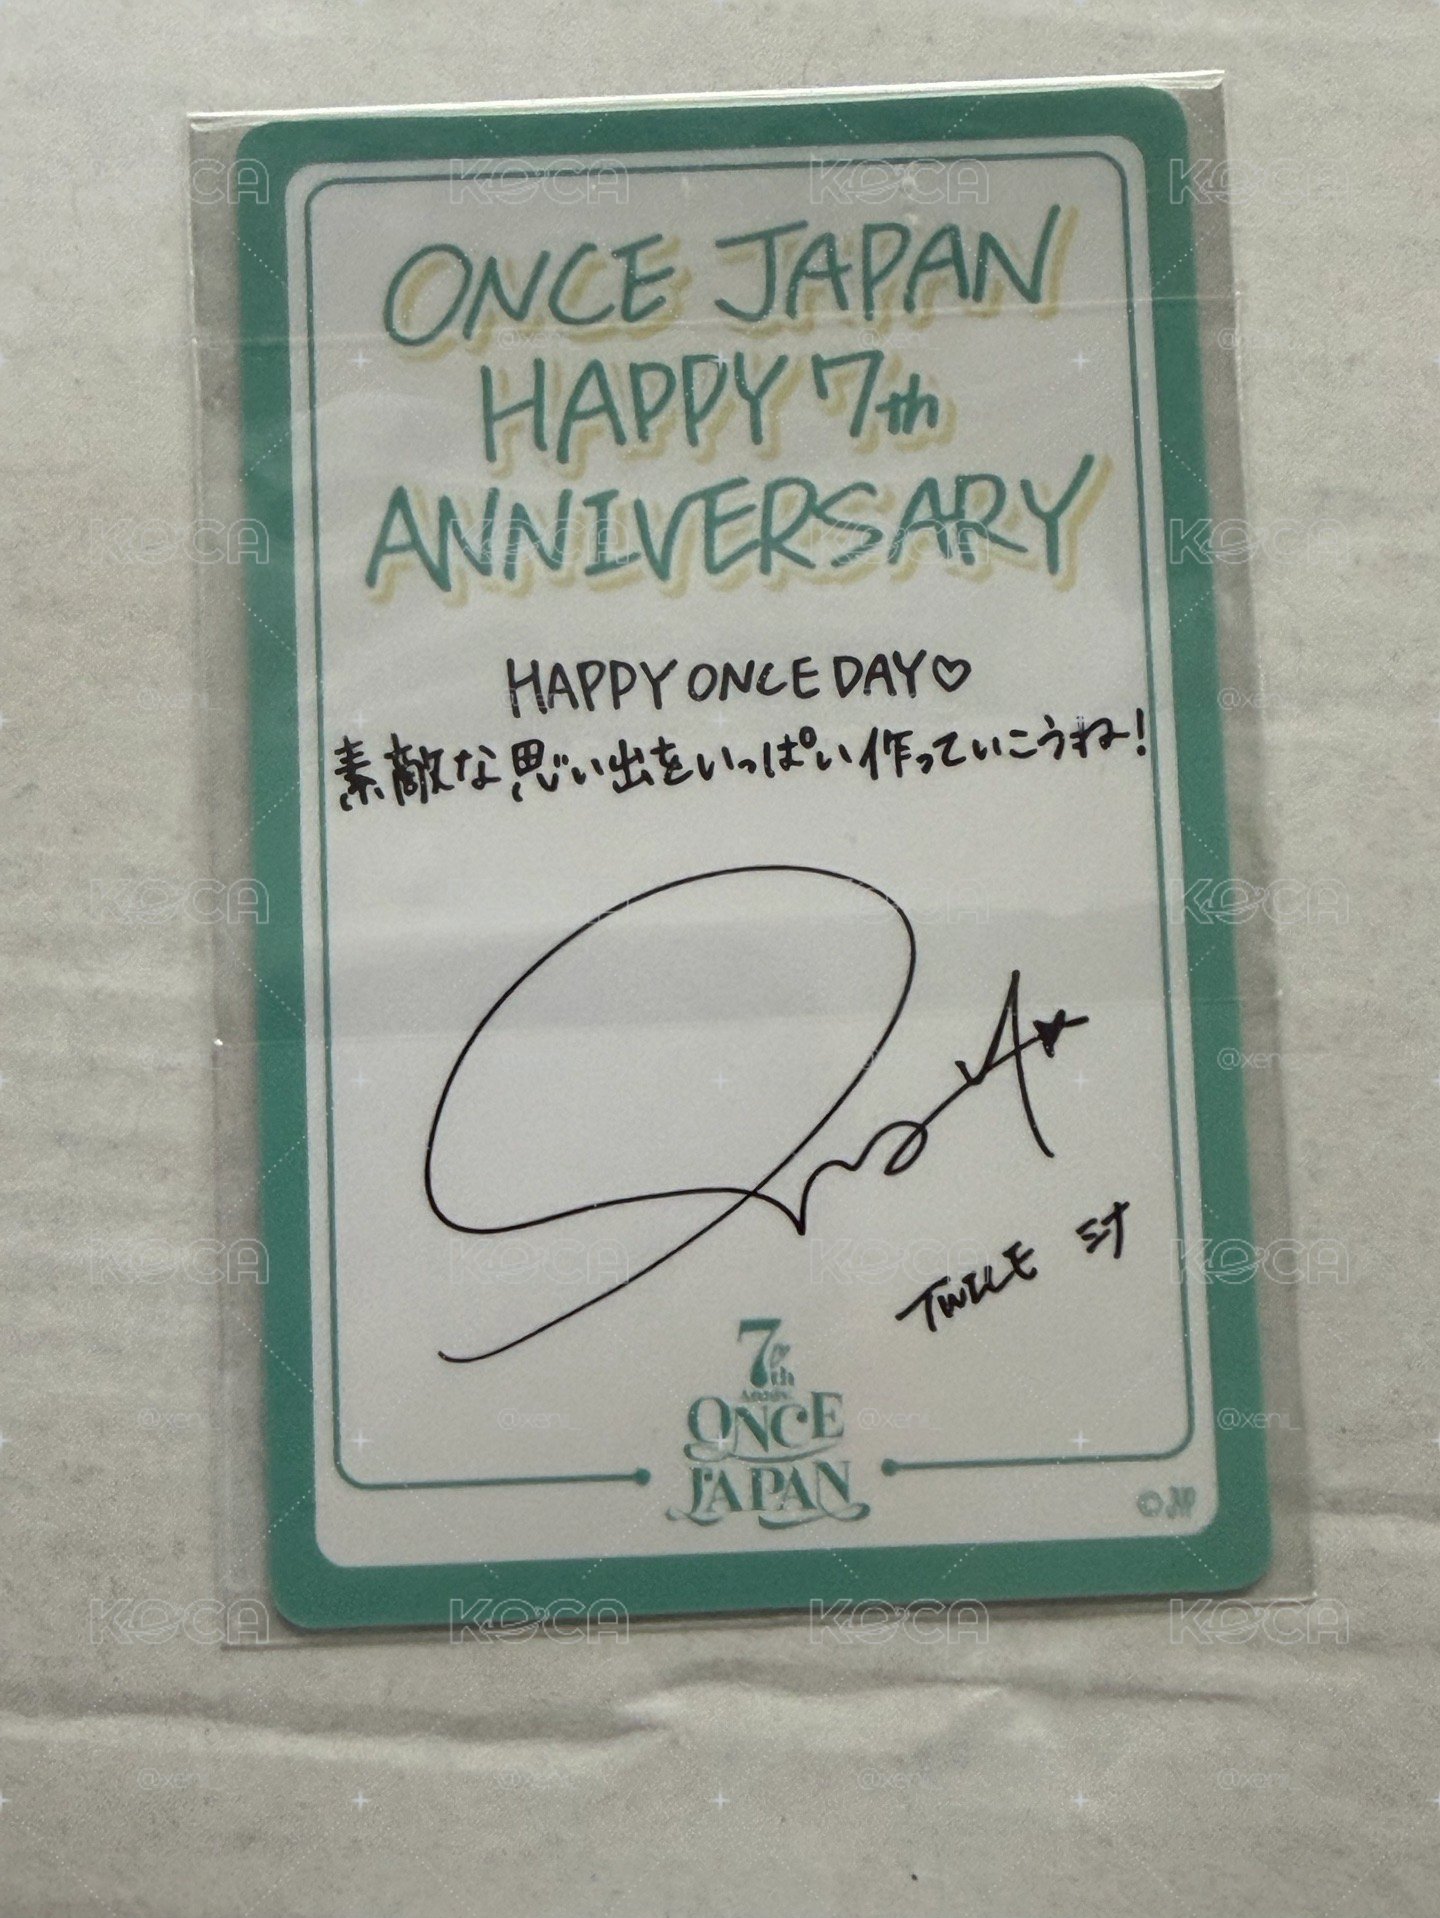 ONCE JAPAN
HAPPY 7th
ANNIVERSARY
HAPPY ONCE DAY♡
素敵な思い出をいっぱい作っていこうね!
TWICE ミナ
7th
ONCE
JAPAN
KOCA
@xeni_